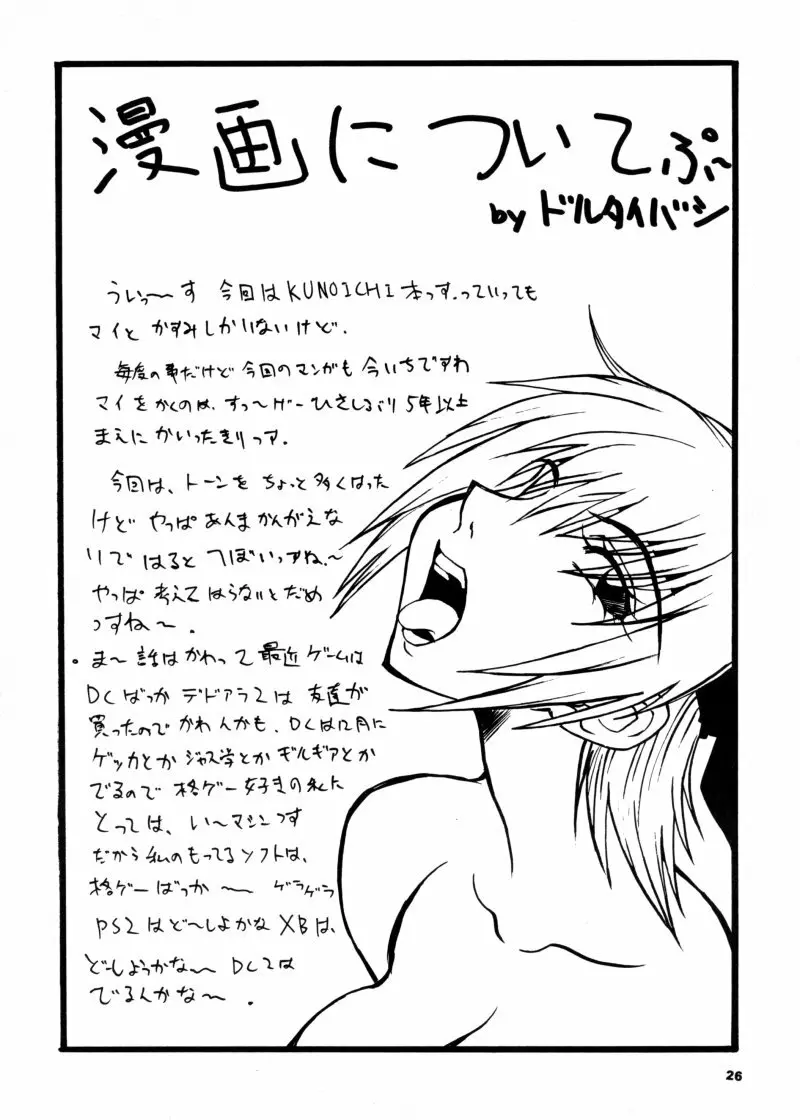 漫画についてぷ〜
by ドルタイバシ
ういっ〜す 今回は KUNOICHI 本っす.っていっても
マイと かすみしかいないけど.
毎度の事だけど 今回のマンガも 今いちですわ
マイ をかくのは、すっ〜ゲー ひさしぶり 5年以上
まえに かいったきりっす.
今回は、トーンを ちょっと多くはった
けど やっぱ あんま かんがえな
いで はると つぼいっすね.〜
やっぱ 考えて はらないと だめ
っすね〜.
・ま〜 話は かわって 最近 ゲームは
DCばっか デドアラ2は 友達が
買ったので かわんかも、DCは12月に
ゲッカとか ジャス学とか ギルギアとか
でるので 格ゲー 好きの 私に
とっては、い〜マシンっす
だから 私の もってる ソフトは、
格ゲー ばっか 〜 ゲラゲラ
PS2は ど〜しよかな XBは、
ど〜しょうかな〜 DC2は
でるんかな〜 .
26